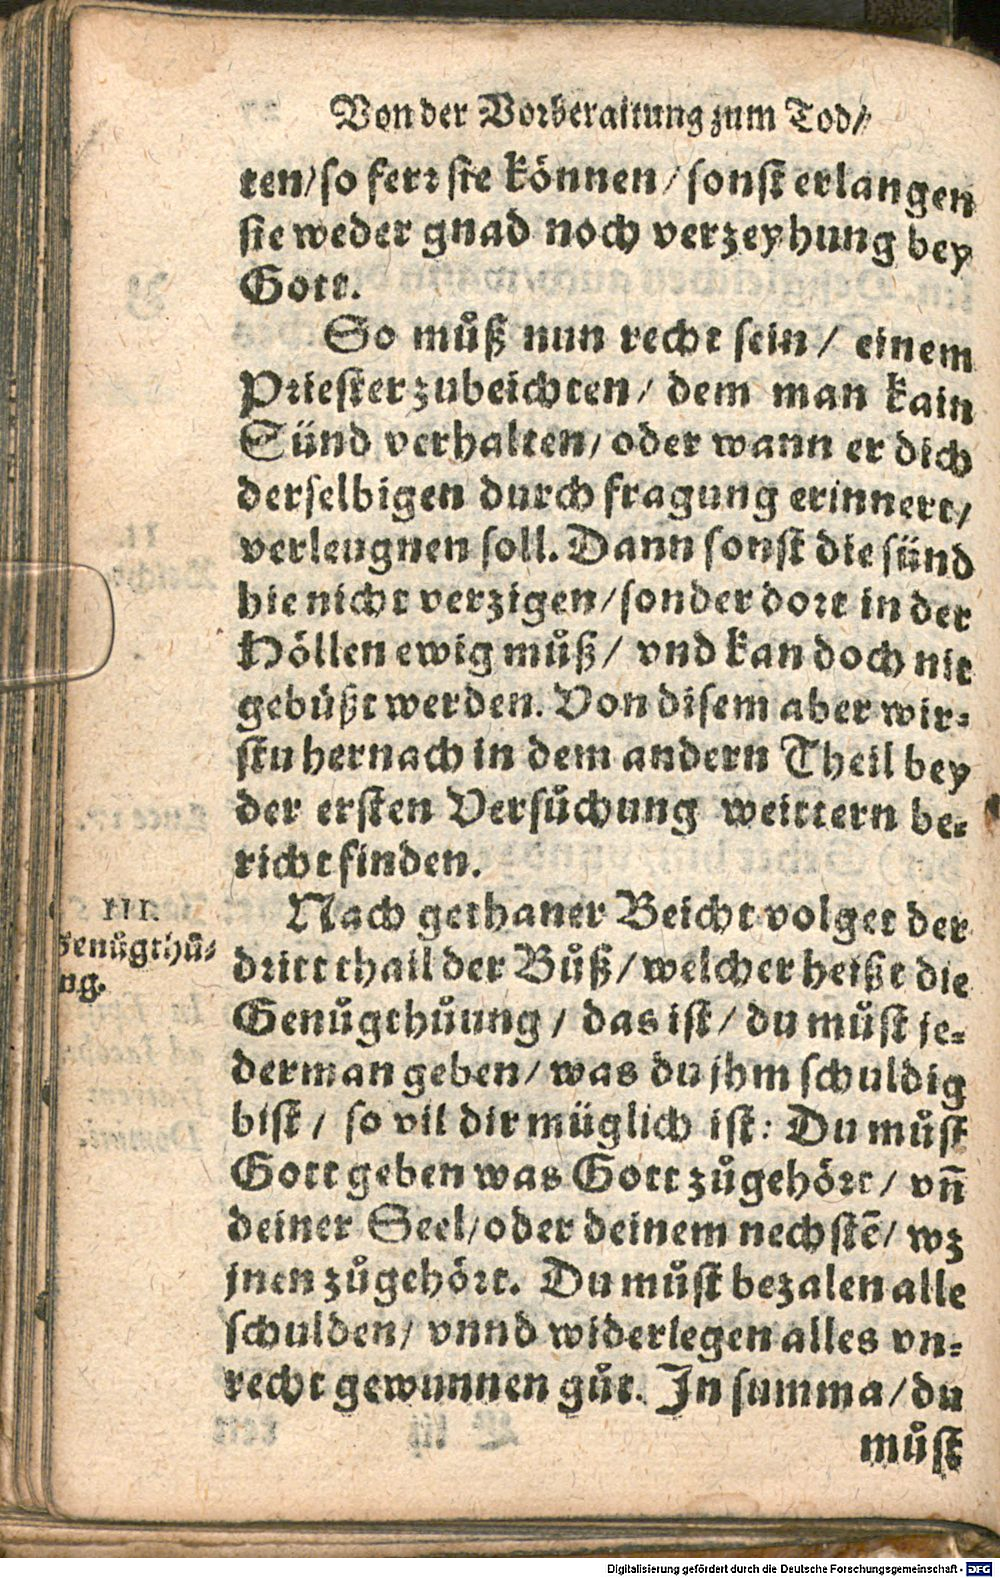 Von der Vorberaitung zum Tod/
ten/ so ferr sie können/ sonst erlangen
sie weder gnad noch verzeyhung bey
Gott.
So můß nun recht sein/ einem
Priester zubeichten/ dem man kain
Sünd verhalten/ oder wann er dich
derselbigen durch fragung erinnert/
verleugnen soll. Dann sonst die sünd
hie nicht verzigen/ sonder dort in der
Höllen ewig můß/ vnd kan doch nit
gebüßt werden. Von disem aber wir-
stu hernach in dem andern Theil bey
der ersten Versůchung weittern be-
richt finden.
III.
Genůgthů-
ung.
Nach gethaner Beicht volget der
dritt thail der Bůß/ welcher heißt die
Genůgthůung/ das ist/ du můst je-
derman geben/ was du jhm schuldig
bist/ so vil dir müglich ist: Du můst
Gott geben was Gott zůgehört/ vñ
deiner Seel/ oder deinem nechstē/ wz
jnen zůgehört. Du můst bezalen alle
schulden/ vnnd widerlegen alles vn-
recht gewunnen gůt. In summa/ du
můst
Digitalisierung gefördert durch die Deutsche Forschungsgemeinschaft - DFG